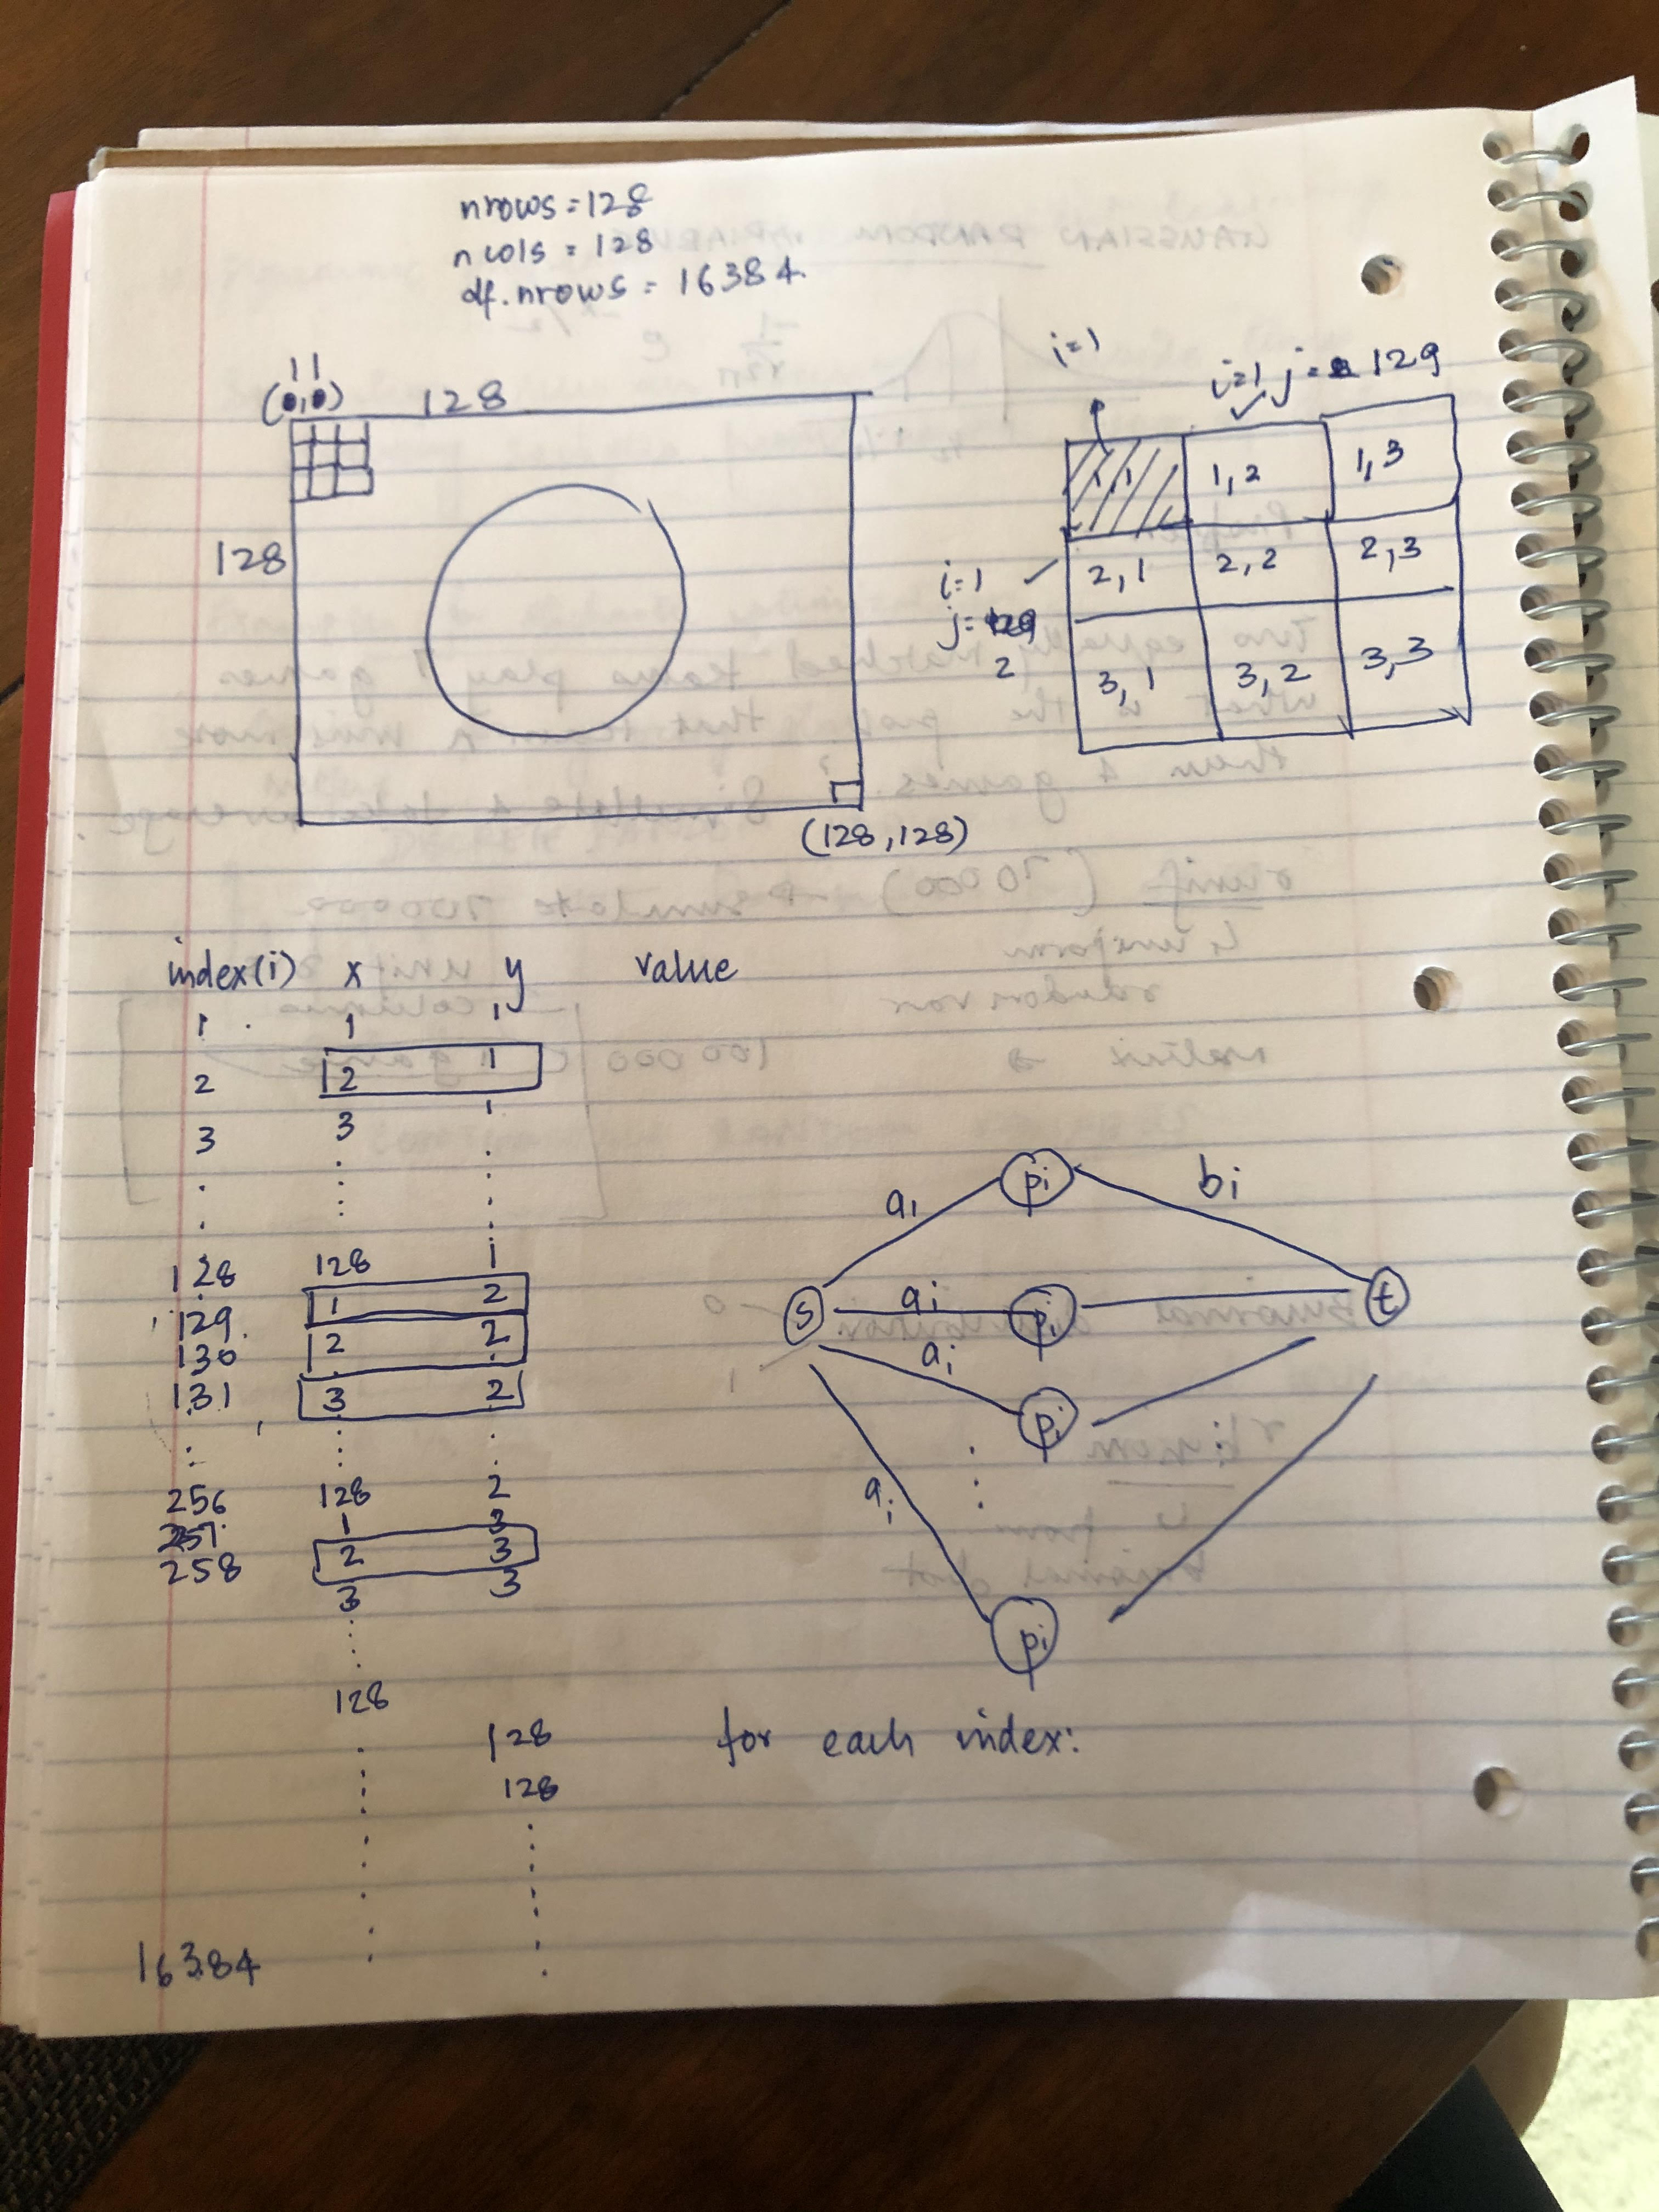 nrows = 128
ncols = 128
df.nrows = 16384
11
(0,0)
128
128
(128,128)
i=1
i=1 j = 129
1,1 1,2 1,3
i=1
j= 129
2
2,1 2,2 2,3
3,1 3,2 3,3
index(i) x y value
1 1 1
2 2 1
3 3 1
128 128 1
129 1 2
130 2 2
131 3 2
256 128 2
257 1 3
258 2 3
3 3
128
128
128
16384
ai pi bi
s ai pi t
ai pi
ai pi
for each index: